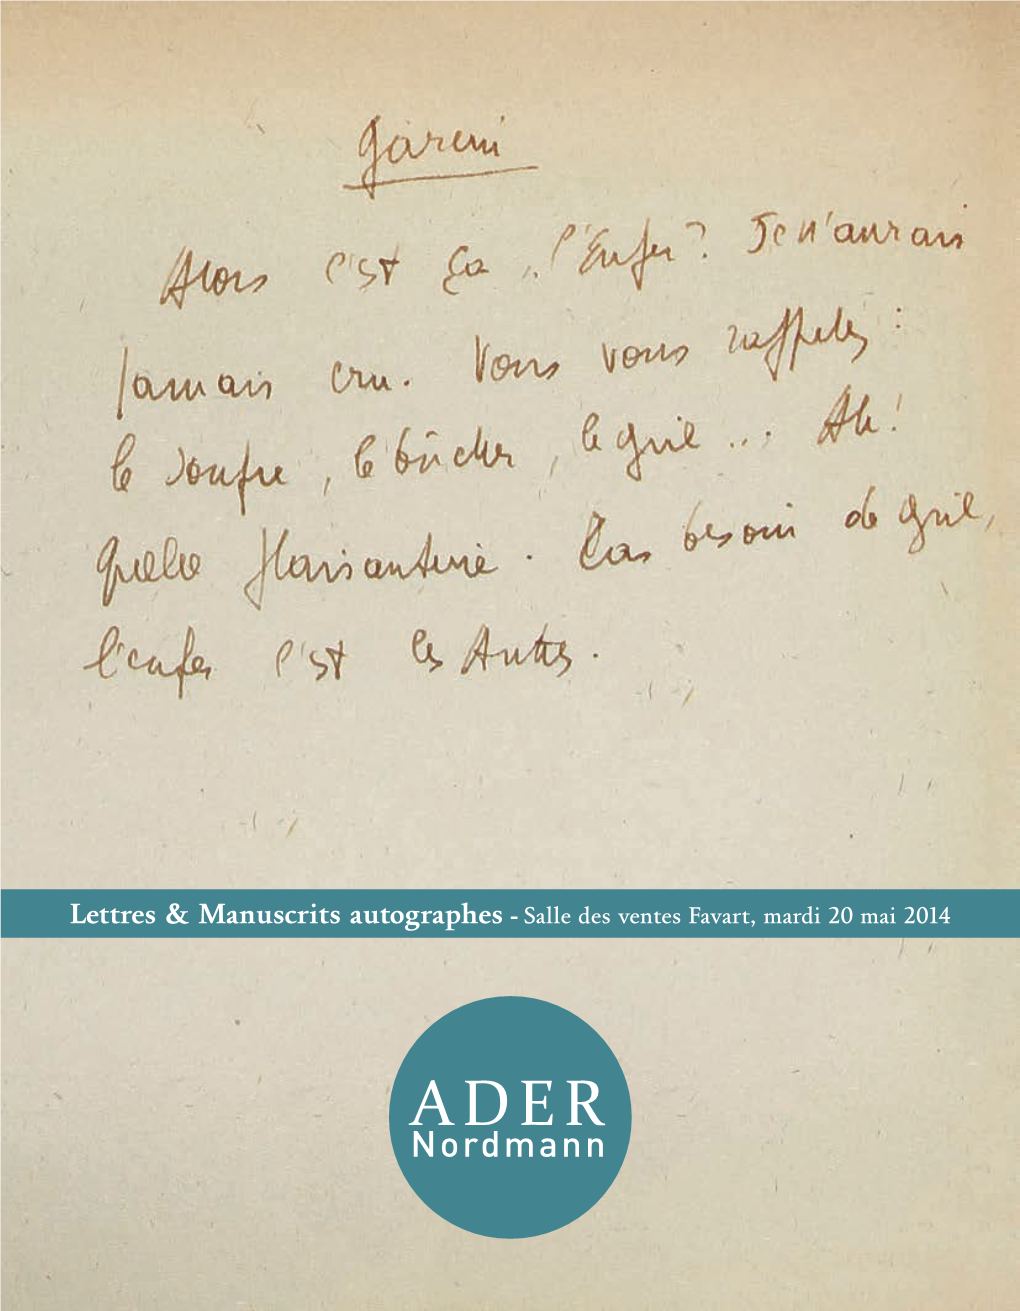 Garcin
Alors c'est ça „ l'Enfer? Je n'aurais
Jamais cru. Vous vous rappelez :
le soufre, le bûcher, le gril ... Ah!
quelle plaisanterie. Pas besoin de gril,
l'enfer c'est les Autres.
Lettres & Manuscrits autographes - Salle des ventes Favart, mardi 20 mai 2014
ADER
Nordmann